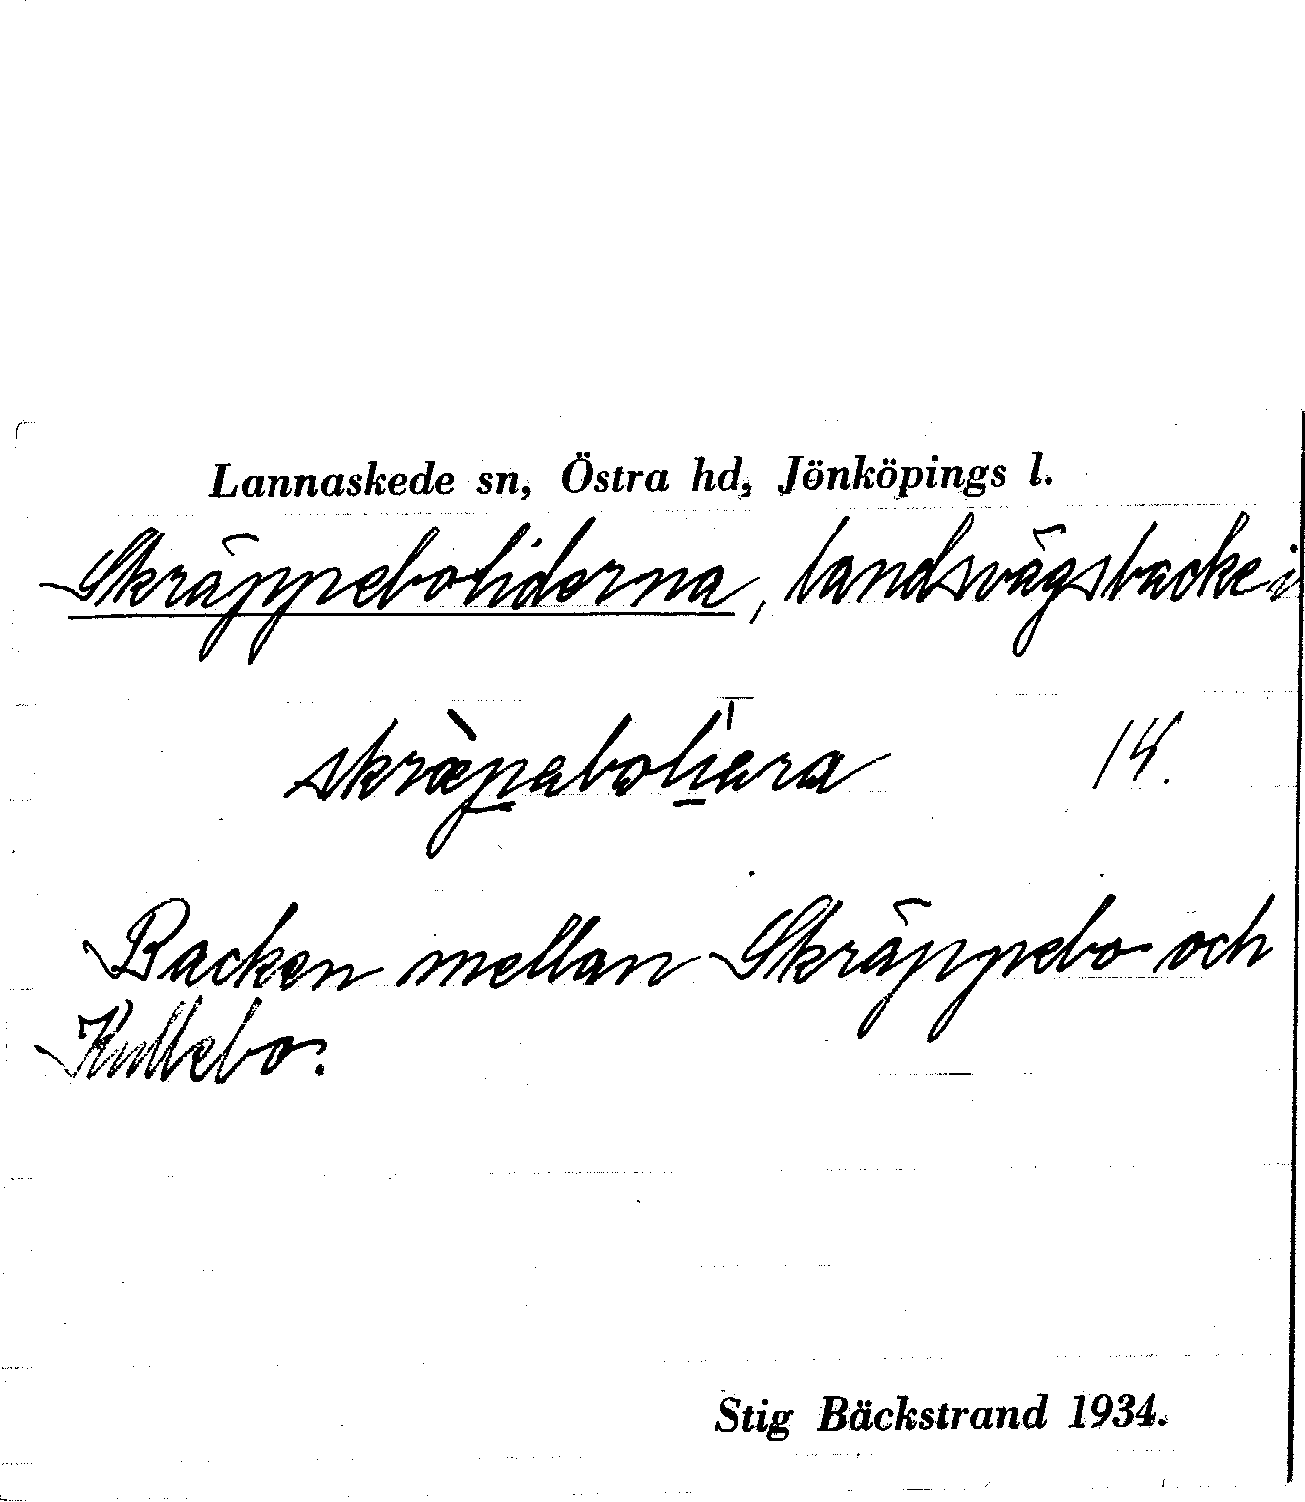 Lannaskede sn, Östra hd, Jönköpings l.
Skräppeboliderna, landsvägsbacke i
skræ̀paboliara 14.
Backen mellan Skräppebo och
Kullebo.
Stig Bäckstrand 1934.